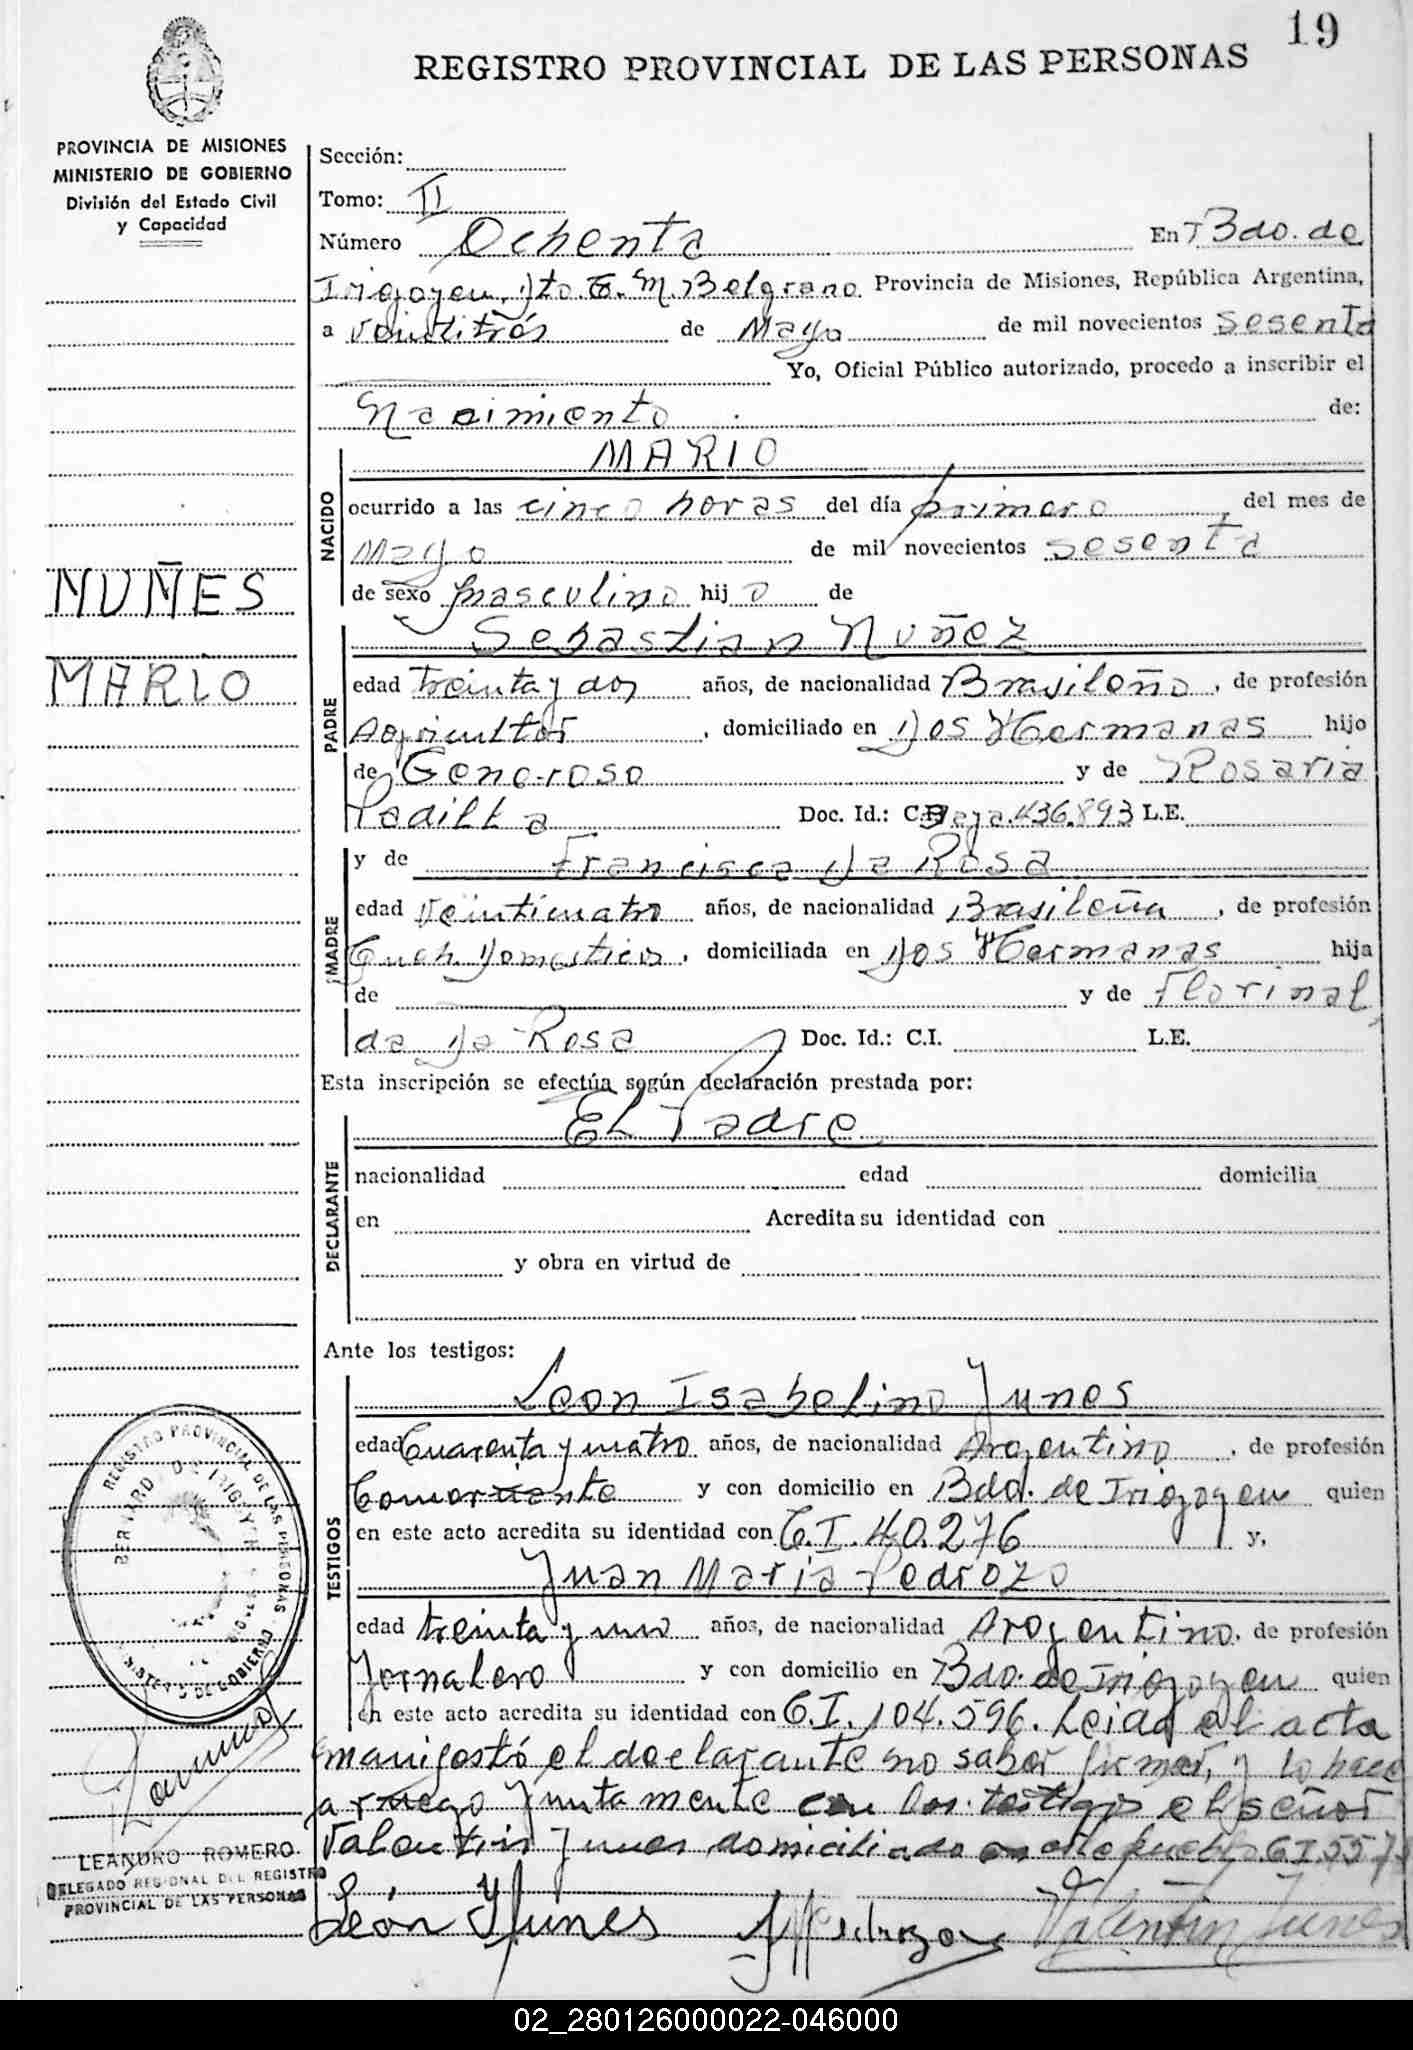 19
REGISTRO PROVINCIAL DE LAS PERSONAS
PROVINCIA DE MISIONES
MINISTERIO DE GOBIERNO
División del Estado Civil
y Capacidad
Sección:
Tomo: II
Número Ochenta En Bdo. de
Irigoyen, Dto. G. M. Belgrano Provincia de Misiones, República Argentina,
a veintitrés de Mayo de mil novecientos sesenta
Yo, Oficial Público autorizado, procedo a inscribir el
Nacimiento de:
NUÑES
MARIO
NACIDO
MARIO
ocurrido a las cinco horas del día primero del mes de
Mayo de mil novecientos sesenta
de sexo masculino hijo de
PADRE
Sebastian Nuñez
edad treinta y dos años, de nacionalidad Brasileño, de profesión
Agricultor, domiciliado en Dos Hermanas hijo
de Generoso y de Rosaria
Padilla Doc. Id.: C. 436.893 L.E.
MADRE
y de Francisca Da Rosa
edad Veinticuatro años, de nacionalidad Brasileña, de profesión
Queh Domesticos, domiciliada en Dos Hermanas hija
de y de Florinal
da Da Rosa Doc. Id.: C.I. L.E.
Esta inscripción se efectúa según declaración prestada por:
DECLARANTE
El Padre
nacionalidad edad domicilia
en Acredita su identidad con
y obra en virtud de
Ante los testigos:
TESTIGOS
Leon Isabelino Junes
edad Cuarenta y cuatro años, de nacionalidad Argentino, de profesión
Comerciante y con domicilio en Bdo. de Irigoyen quien
en este acto acredita su identidad con C.I. 40.276 y,
Juan Maria Pedrozo
edad treinta y uno años, de nacionalidad Argentino, de profesión
Jornalero y con domicilio en Bdo. de Irigoyen quien
en este acto acredita su identidad con C.I. 104.596. Leida el acta
manifestó el declarante no saber firmar, y lo hace
a ruego juntamente con los testigos el señor
Valentin Junes domiciliado en este pueblo C.I. 557
León Junes Pedrozo Valentin Junes
REGISTRO PROVINCIAL DE LAS PERSONAS
BERNARDO DE IRIGOYEN
MINISTERIO DE GOBIERNO
LEANDRO ROMERO
DELEGADO REGIONAL DEL REGISTRO
PROVINCIAL DE LAS PERSONAS
02_280126000022-046000